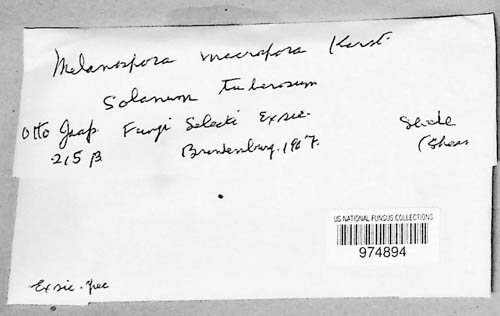 Melanospora macrospora Karst.
Solanum tuberosum
Otto Jaap Fungi Selecti Exsic.
215 β Brandenburg. 1907.
(Shear
US NATIONAL FUNGUS COLLECTIONS
974894
Exsic.